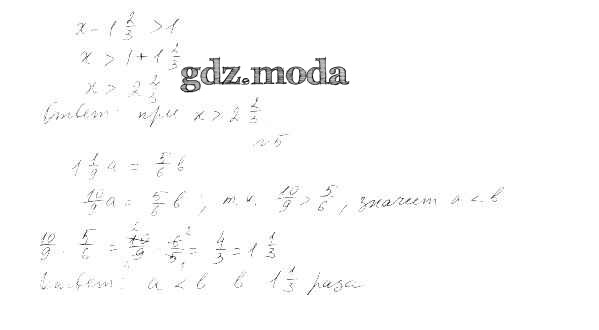 x - 1 2/3 > 1
x > 1 + 1 2/3
gdz.moda
x > 2 2/3
Ответ: при x > 2 2/3
№5
1 1/9 a = 5/6 b
10/9 a = 5/6 b ; т.к. 10/9 > 5/6, значит a < b
10/9 : 5/6 = 10/9 · 6/5 = 4/3 = 1 1/3
Ответ: a < b в 1 1/3 раза